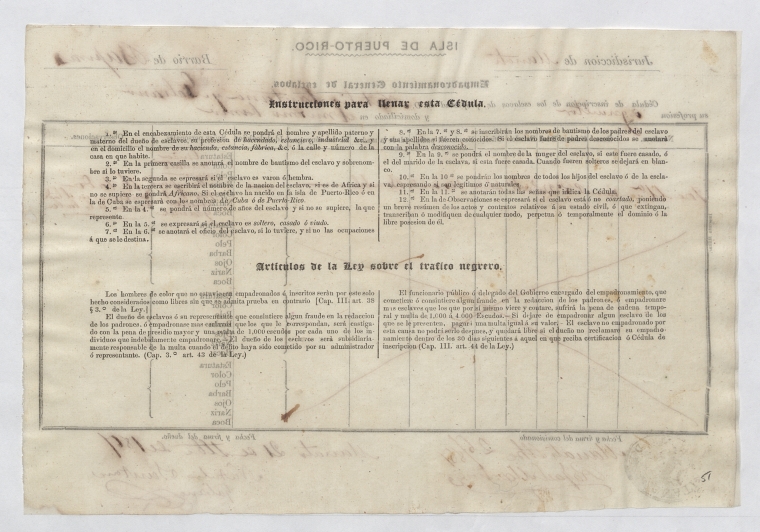 Instrucciones para llenar esta Cédula.
1.ª En el encabezamiento de esta Cédula se pondrá el nombre y apellido paterno y
materno del dueño de esclavos, su profesion de hacendado, estanciero, industrial &c, y
en el domicilio el nombre de su hacienda, estancia, fábrica, &c. ó la calle y número de la
casa en que habite.
2.ª En la primera casilla se anotará el nombre de bautismo del esclavo y sobrenom-
bre si lo tuviere.
3.ª En la segunda se expresará si el esclavo es varon ó hembra.
4.ª En la tercera se escribirá el nombre de la nacion del esclavo, si es de Africa y si
no se supiere se pondrá Africano. Si el esclavo ha nacido en la isla de Puerto-Rico ó en
la de Cuba se expresará con los nombres de Cuba ó de Puerto-Rico.
5.ª En la 4.ª se pondrá el número de años del esclavo y si no se supiere, la que
represente.
6.ª En la 5.ª se expresará si el esclavo es soltero, casado ó viudo.
7.ª En la 6.ª se anotará el oficio del esclavo, si lo tuviere, y si no las ocupaciones
á que se le destina.
8.ª En la 7.ª y 8.ª se inscribirán los nombres de bautismo de los padres del esclavo
y sus apellidos si fueren conocidos. Si el esclavo fuere de padres desconocidos se anotará
con la palabra desconocido.
9.ª En la 9.ª se pondrá el nombre de la muger del esclavo, si este fuere casado, ó
el del marido de la esclava, si esta fuere casada. Cuando fueren solteros se dejará en blan-
co.
10.ª En la 10.ª se pondrán los nombres de todos los hijos del esclavo ó de la escla-
va, expresando si son legítimos ó naturales.
11.ª En la 11.ª se anotarán todas las señas que indica la Cédula.
12.ª En la de Observaciones se expresará si el esclavo está ó no coartado, poniendo
un breve resúmen de los actos y contratos relativos á su estado civil, ó que extingan,
transcriban ó modifiquen de cualquier modo, perpetua ó temporalmente el dominio ó la
libre posesion de él.
Artículos de la Ley sobre el trafico negrero.
Los hombres de color que no estuvieren empadronados é inscritos serán por este solo
hecho considerados como libres sin que se admita prueba en contrario [Cap. III. art 38
§ 3.º de la Ley.]
El dueño de esclavos ó su representante que consintiere algun fraude en la redaccion
de los padrones, ó empadronare mas esclavos que los que le correspondan, será castiga-
do con la pena de presidio mayor y una multa de 1,000 escudos por cada uno de los in-
dividuos que indebidamente empadronare.—El dueño de los esclavos será subsidiaria-
mente responsable de la multa cuando el delito haya sido cometido por su administrador
ó representante. (Cap. 3.º art. 43 de la Ley.)
El funcionario público ó delegado del Gobierno encargado del empadronamiento, que
cometiere ó consintiere algun fraude en la redaccion de los padrones, ó empadronare
mas esclavos que los que por sí mismo viere y contare, sufrirá la pena de cadena tempo-
ral y multa de 1,000 á 4,000 Escudos.— Si dejare de empadronar algun esclavo de los
que se le presenten, pagará una multa igual á su valor.— El esclavo no empadronado por
esta causa no podrá serlo despues, y quedará libre si el dueño no reclamare su empadro-
namiento dentro de los 30 dias siguientes á aquel en que reciba certificacion ó Cédula de
inscripcion (Cap. III. art. 44 de la Ley.)
51